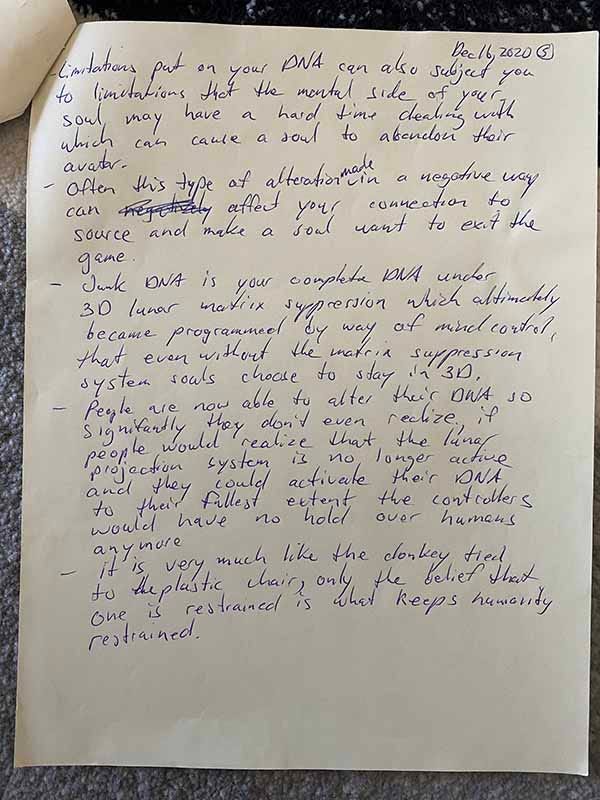 Dec 16, 2020 (3)
- Limitations put on your DNA can also subject you
to limitations that the mental side of your
soul may have a hard time dealing with
which can cause a soul to abandon their
avatar.
- Often this type of alteration made in a negative way
can negatively affect your connection to
source and make a soul want to exit the
game.
- Junk DNA is your complete DNA under
3D lunar matrix suppression which altimately
became programmed by way of mind control,
that even without the matrix suppression
system souls choose to stay in 3D.
- People are now able to alter their DNA so
signifantly they don't even realize, if
people would realize that the lunar
projection system is no longer active
and they could activate their DNA
to their fullest extent the controllers
would have no hold over humans
anymore
- it is very much like the donkey tied
to the plastic chair, only the belief that
one is restrained is what keeps humanity
restrained.